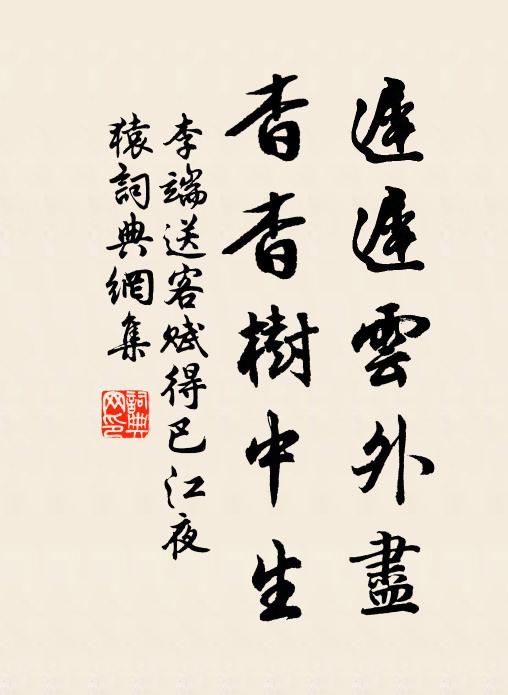 遲遲雲外盡
杳杳樹中生
李端送客賦得巴江夜
猿詞典網集
詞典
网印